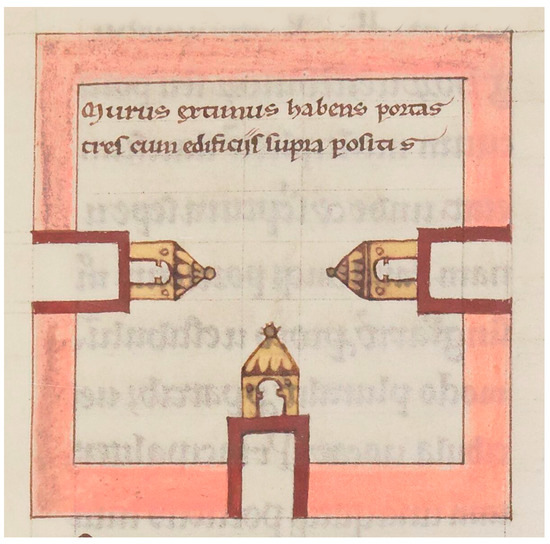 Murus extimus habens portas
tres cum edificijs supra positis